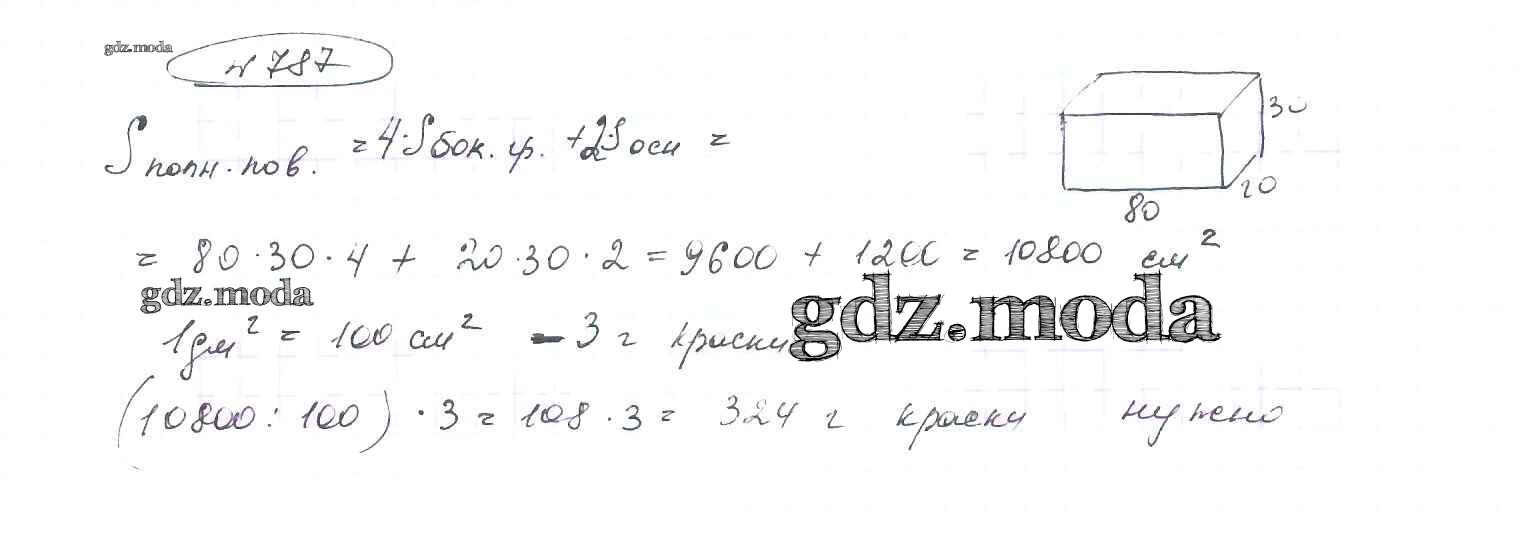 gdz.moda
№ 787
S полн. пов. = 4·S бок. гр. + 2S осн =
30
20
80
= 80 · 30 · 4 + 20 · 30 · 2 = 9600 + 1200 = 10800 см²
gdz.moda
gdz.moda
1 дм² = 100 см² - 3 г краски
(10800 : 100) · 3 = 108 · 3 = 324 г краски нужно